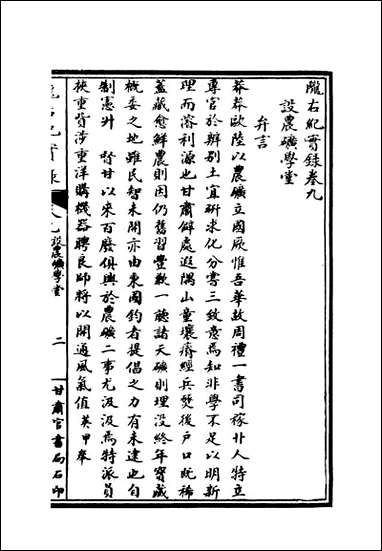 隴右紀實錄卷九
設農礦學堂
弁言
莽莽歐陸以農礦立國厥惟吾華故周禮一書司稼卝人特立
專官於辨別土宜研求化分嘗三致意焉知非學不足以明新
理而濬利源也甘肅僻處遐隅山童壤瘠經兵燹後戶口既稀
蓋藏愈鮮農則因仍舊習豐歉一聽諸天礦則埋沒終年寶藏
概委之地雖民智未開亦由東國鈞者提倡之力有未逮也自
制憲升　督甘以來百廢俱興於農礦二事尤汲汲焉特派員
挾重貲涉重洋購機器聘良師將以開通風氣值英甲奉
隴右紀實錄 卷九設農礦學堂 二 甘肅官書局石印